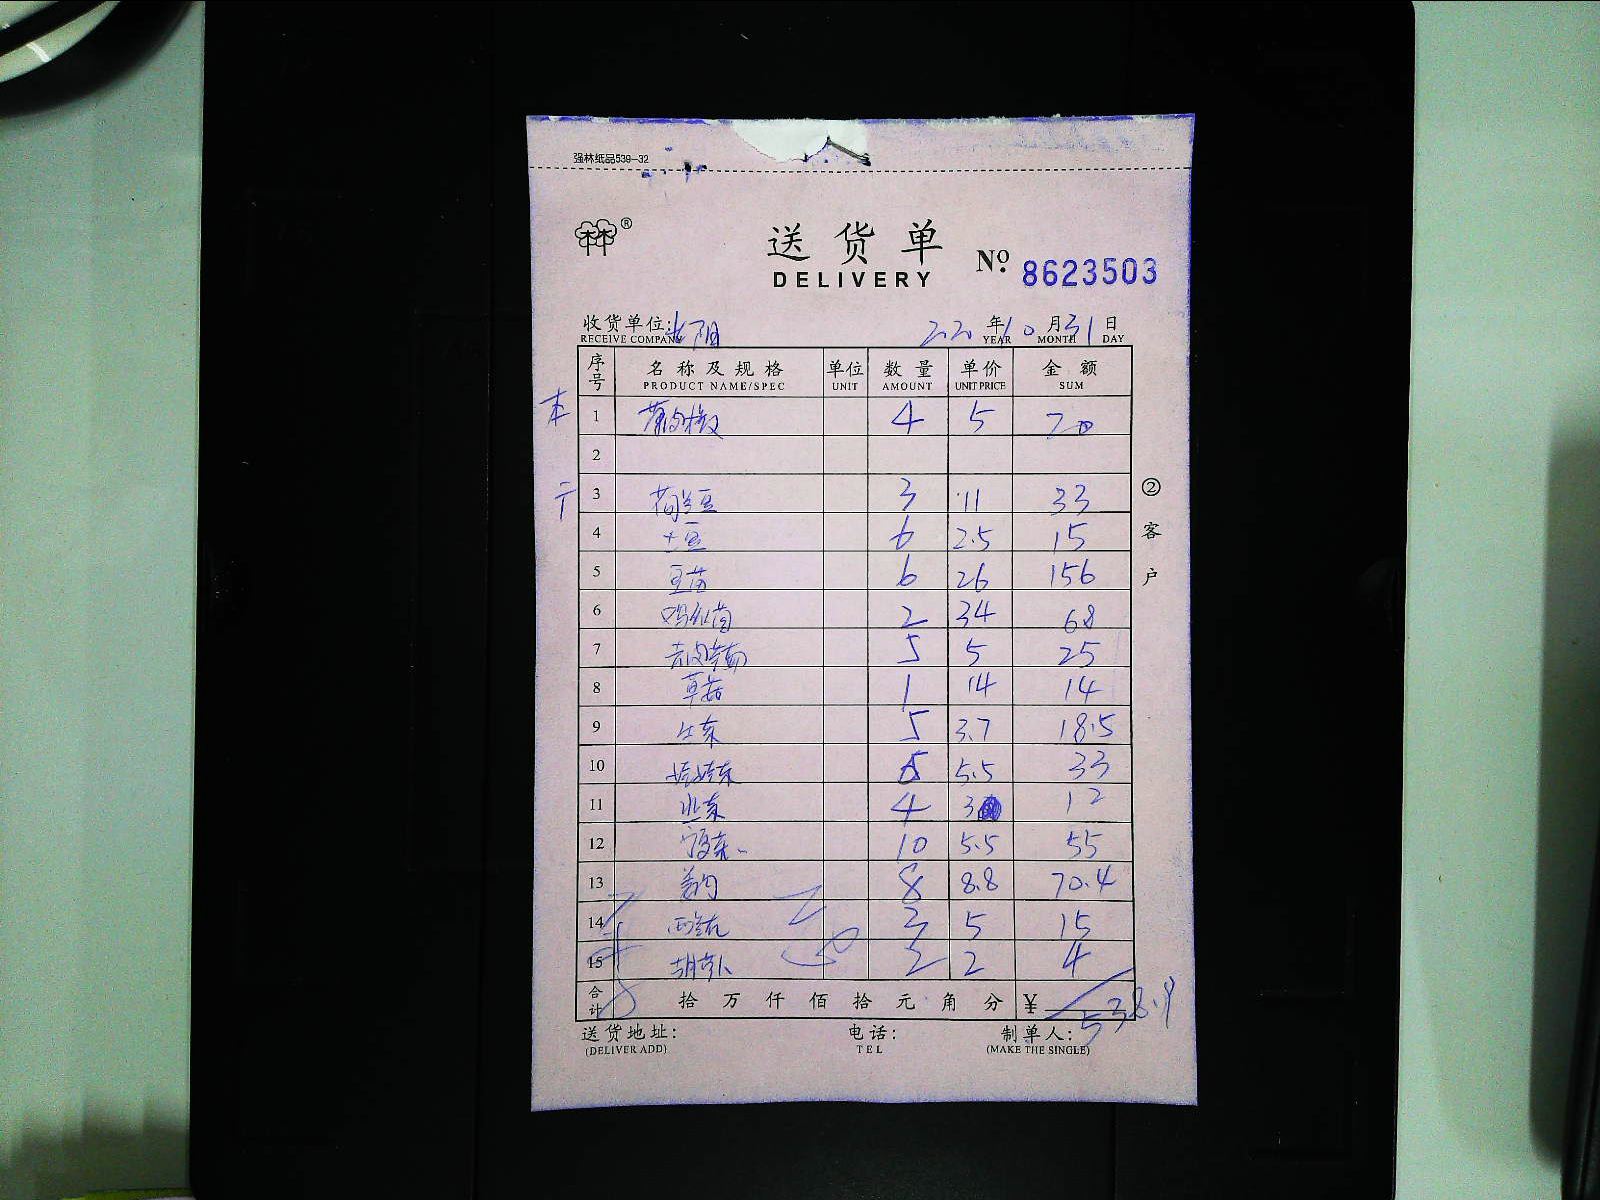 强林纸品539-32
林®
送货单
DELIVERY
№ 8623503
收货单位: 年10月31日
RECEIVE COMPANY YEAR MONTH DAY
序号 名称及规格 单位 数量 单价 金额
PRODUCT NAME/SPEC UNIT AMOUNT UNIT PRICE SUM
本 1 4 5 20
2
3 荷兰豆 3 11 33
4 土豆 6 2.5 15
5 豆苗 6 26 156
6 2 34 68
7 5 5 25
8 草菇 1 14 14
9 生菜 5 3.7 18.5
10 娃娃菜 6 5.5 33
11 4 3 12
12 10 5.5 55
13 8 8.8 70.4
14 3 5 15
15 胡萝卜 2 2 4
合计 拾万仟佰拾元角分 ¥ 538.9
送货地址: 电话: 制单人:
(DELIVER ADD) TEL (MAKE THE SINGLE)
②客户